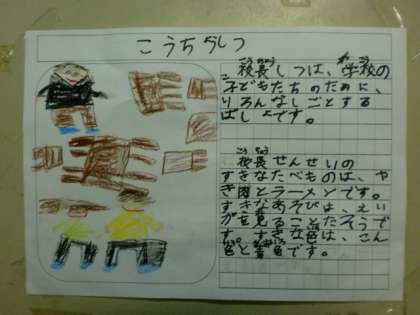 こうちょうしつ
校長しつは、学校の
子どもたちのために、
いろんなしごとする
ばしょです。
校長せんせいの
すきなたべものは、や
き肉とラーメンです。
すきなあそびは、えい
がを見ることだそうで
す。すきな色は、こん
色と黄色です。